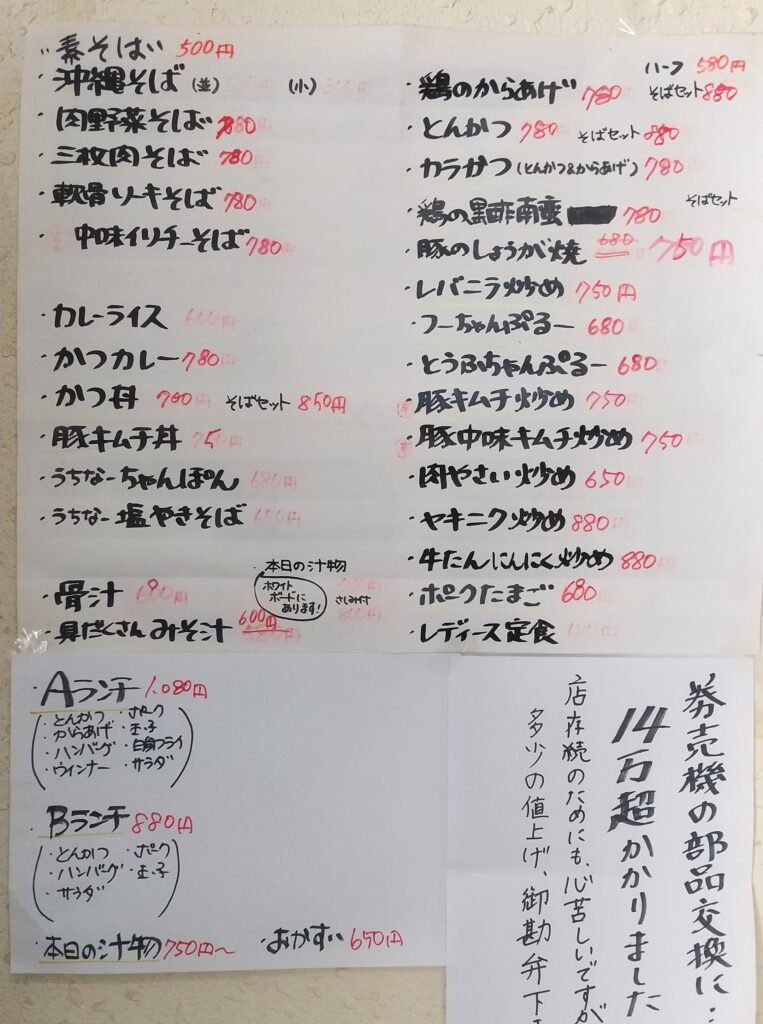 ・素そば 500円
・沖縄そば (並) (小)
・肉野菜そば 780
・三枚肉そば 780
・軟骨ソーキそば 780
・中味イリチーそば 780
・カレーライス 600円
・かつカレー 780
・かつ丼 700 そばセット 850円
・豚キムチ丼
・うちなーちゃんぽん 680円
・うちなー塩やきそば 650円
・骨汁 680
本日の汁物
ホワイト
ボードに
あります!
さしみ付
・具だくさんみそ汁 600円
ハーフ 580円
・鶏のからあげ 780 そばセット 880
・とんかつ 780 そばセット 880
・カラかつ(とんかつ&からあげ) 780
そばセット
・鶏の黒酢南蛮 780
・豚のしょうが焼 680 750円
・レバニラ炒め 750円
・フーちゃんぷるー 680
・とうふちゃんぷるー 680
・豚キムチ炒め 750
・豚中味キムチ炒め 750
・肉やさい炒め 650
・ヤキニク炒め 880
・牛たんにんにく炒め 880
・ポークたまご 680
・レディース定食
・Aランチ 1,080円
・とんかつ ・ポーク
・からあげ ・玉子
・ハンバーグ ・白身フライ
・ウインナー ・サラダ
・Bランチ 880円
・とんかつ ・ポーク
・ハンバーグ ・玉子
・サラダ
・本日の汁物 750円〜 ・おかずい 650円
券売機の部品交換に…
14万超かかりました
店存続のためにも、心苦しいですが
多少の値上げ、御勘弁下